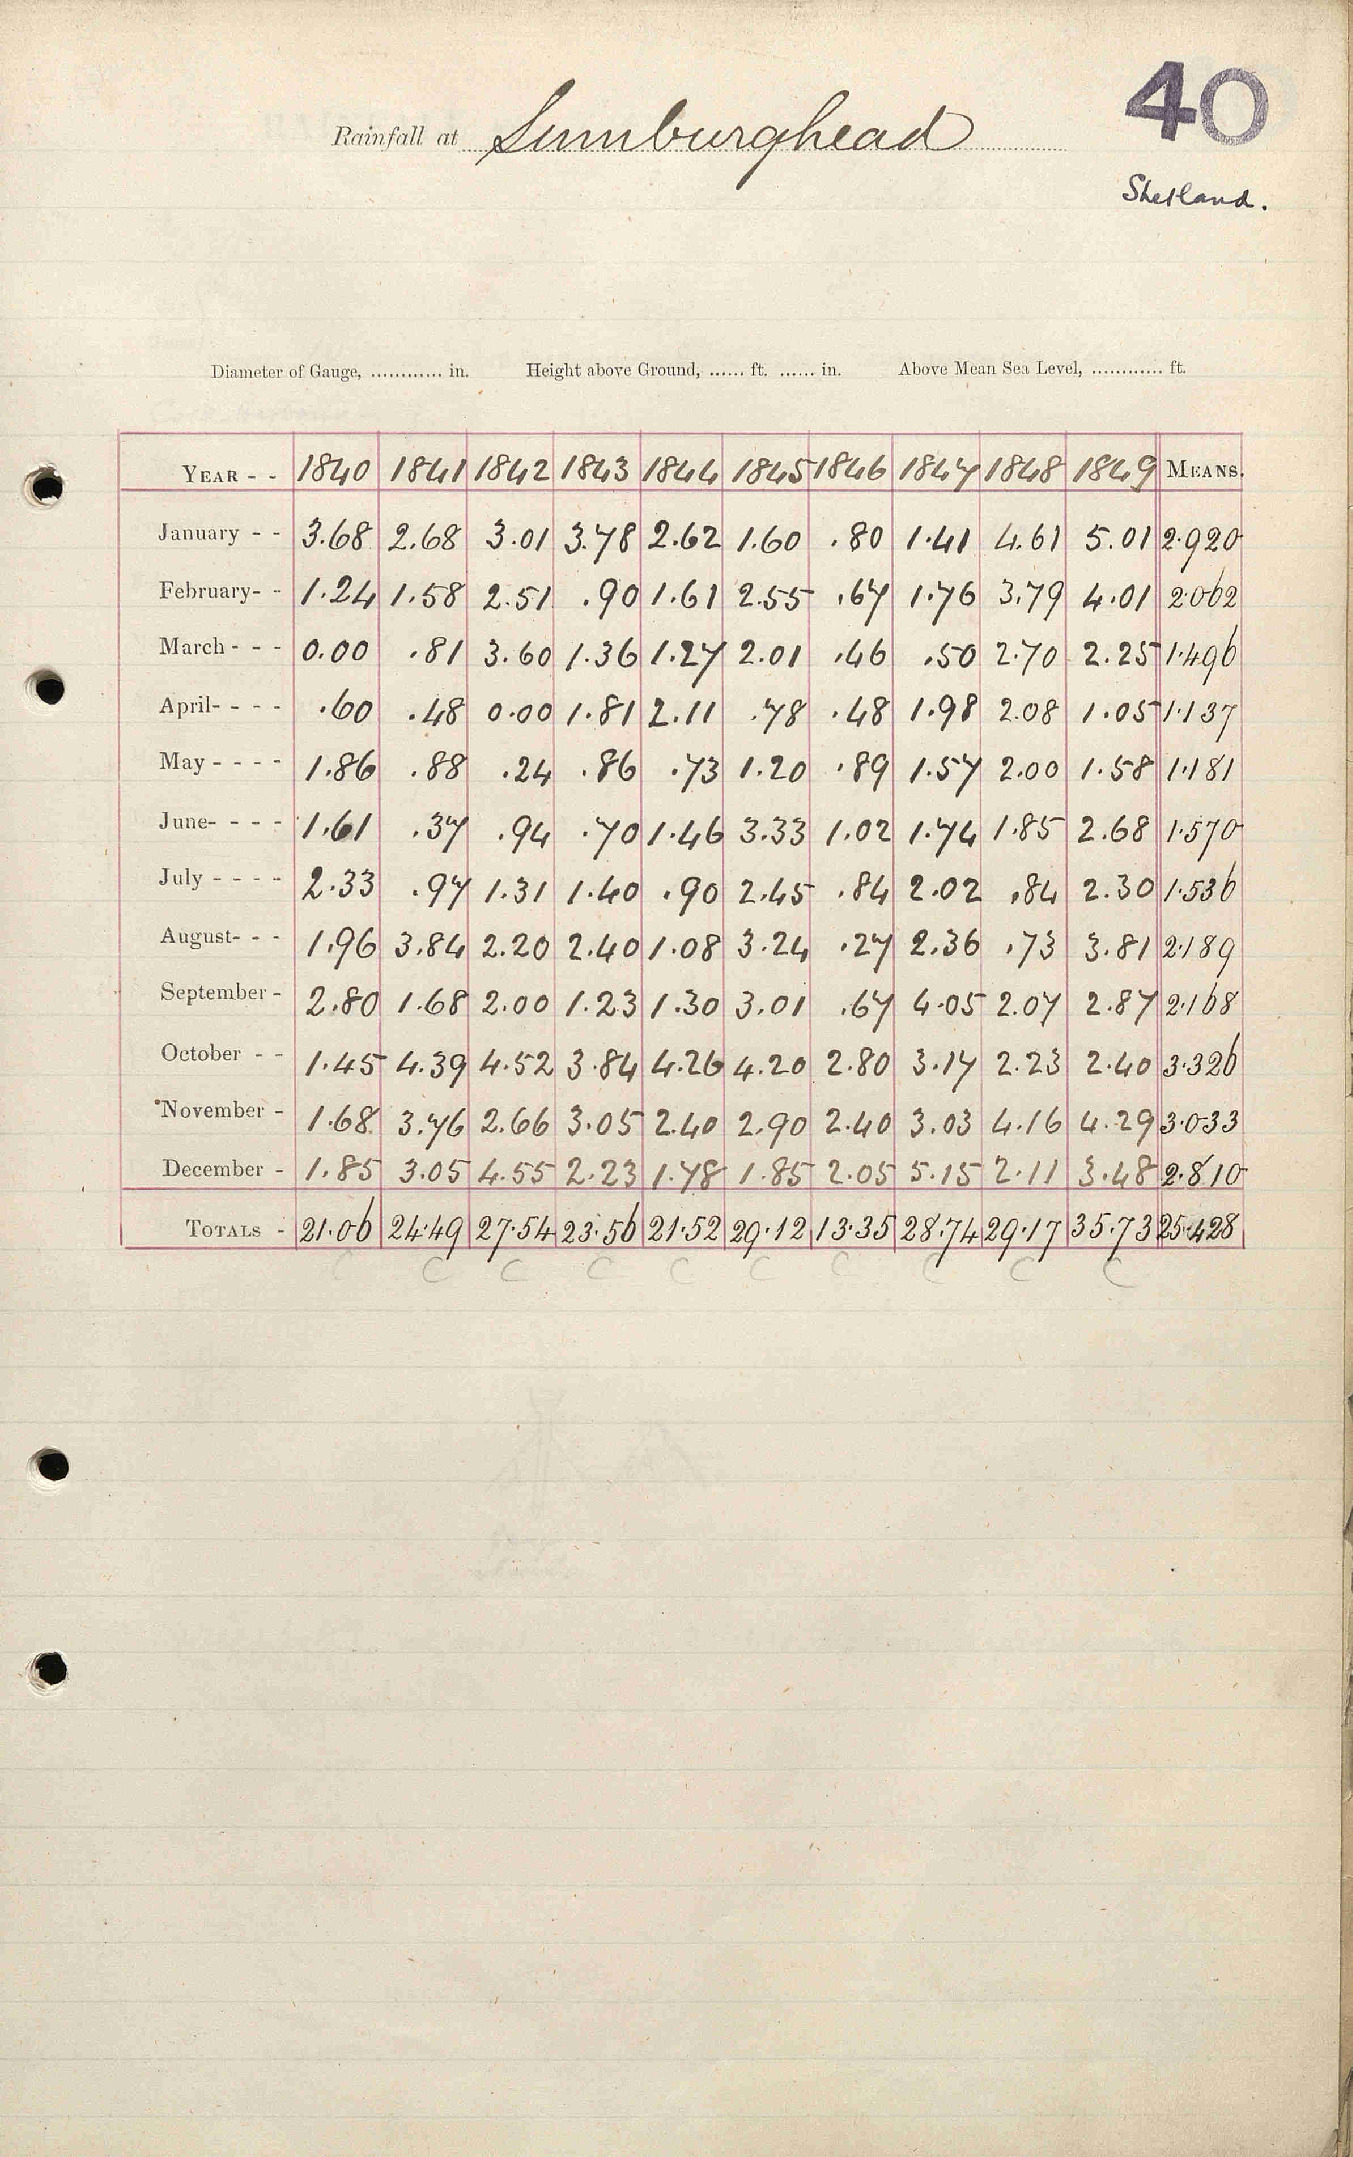 40
Rainfall at Sumburghead
Shetland.
Diameter of Gauge, ............ in. Height above Ground, ...... ft. ...... in. Above Mean Sea Level, ............ ft.
YEAR - - 1840 1841 1842 1843 1844 1845 1846 1847 1848 1849 MEANS.
January - - 3.68 2.68 3.01 3.78 2.62 1.60 .80 1.41 4.61 5.01 2.920
February- - 1.24 1.58 2.51 .90 1.61 2.55 .67 1.76 3.79 4.01 2.062
March - - - 0.00 .81 3.60 1.36 1.27 2.01 .46 .50 2.70 2.25 1.496
April- - - - .60 .48 0.00 1.81 2.11 .78 .48 1.98 2.08 1.05 1.137
May - - - - 1.86 .88 .24 .86 .73 1.20 .89 1.57 2.00 1.58 1.181
June- - - - 1.61 .37 .94 .70 1.46 3.33 1.02 1.74 1.85 2.68 1.570
July - - - - 2.33 .97 1.31 1.40 .90 2.45 .84 2.02 .84 2.30 1.536
August- - - 1.96 3.84 2.20 2.40 1.08 3.24 .27 2.36 .73 3.81 2.189
September - 2.80 1.68 2.00 1.23 1.30 3.01 .67 4.05 2.07 2.87 2.168
October - - 1.45 4.39 4.52 3.84 4.26 4.20 2.80 3.17 2.23 2.40 3.326
November - 1.68 3.76 2.66 3.05 2.40 2.90 2.40 3.03 4.16 4.29 3.033
December - 1.85 3.05 4.55 2.23 1.78 1.85 2.05 5.15 2.11 3.48 2.810
TOTALS - 21.06 24.49 27.54 23.56 21.52 29.12 13.35 28.74 29.17 35.73 25.428
C C C C C C C C C C